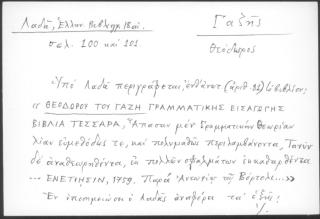 Λαδᾶ, Ἑλλην. Βιβλιογρ. 18 αἰ.
σελ. 100 καὶ 101.
Γαζῆς
Θεόδωρος
Ὑπὸ Λαδᾶ περιγράφεται, (ἀριθ. 92)
« ΘΕΟΔΩΡΟΥ ΤΟΥ ΓΑΖΗ ΓΡΑΜΜΑΤΙΚΗΣ ΕΙΣΑΓΩΓΗΣ
ΒΙΒΛΙΑ ΤΕΣΣΑΡΑ, Ἅπασαν μὲν Γραμματικὴν θεωρίαν
λίαν εὐμεθόδως τε, καὶ πολυμαθῶς περιλαμβάνοντα, Τανῦν
δ' ἀναθεωρηθέντα, ἐκ πολλῶν σφαλμάτων ἐκκαθαρθέντα
... ΕΝΕΤΙΗΣΙΝ, 1759. Παρὰ Ἀντωνίῳ τῷ Βόρτολι...»
Ἐν ὑποσημειώσει ὁ Λαδᾶς ἀναφέρει τὰ ἑξῆς: